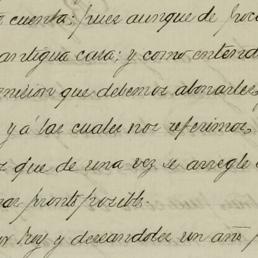 cuenta; pues aunque de poca
antigua casa; y como entend
omision que debemos abonarles,
y á las cuales nos referimos,
que de una vez se arregle
mas pronto posible.
por hoy y deseandoles un año